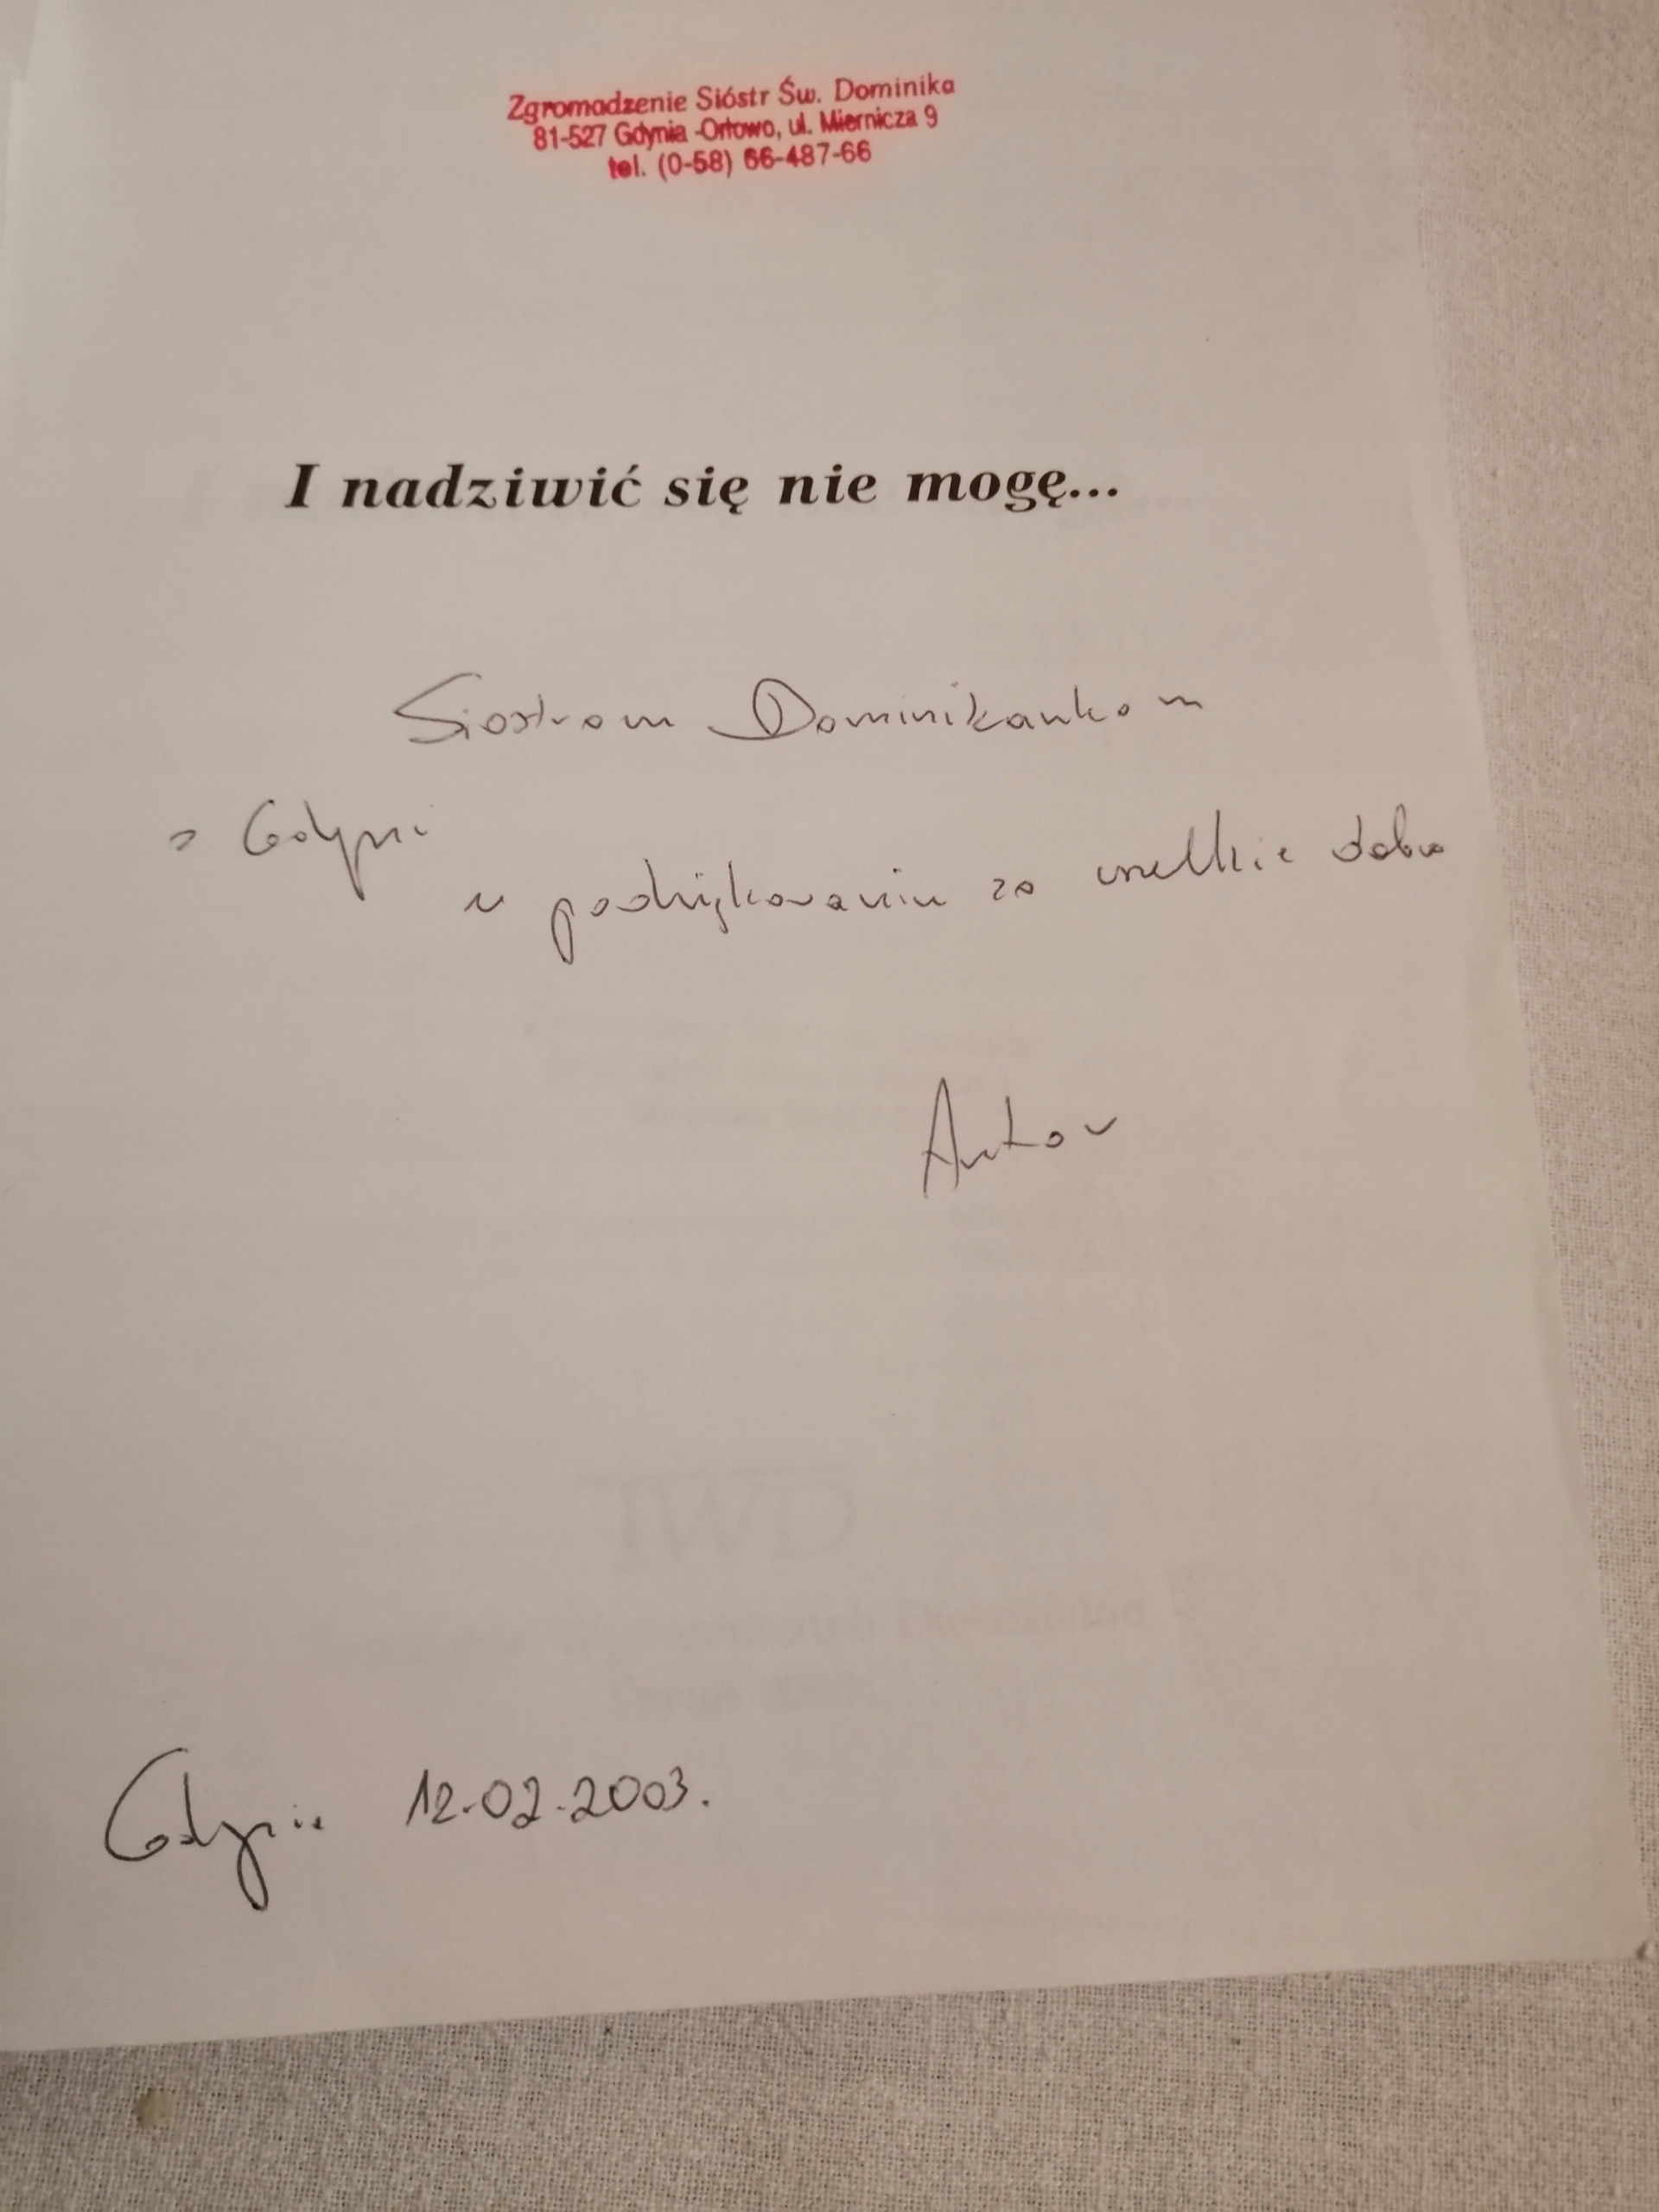 Zgromadzenie Sióstr Św. Dominika
81-527 Gdynia-Orłowo, ul. Miernicza 9
tel. (0-58) 66-487-66
I nadziwić się nie mogę...
Siostrom Dominikankom
z Gdyni
w podziękowaniu za wszelkie dobro
Autor
Gdynia 12.02.2003.